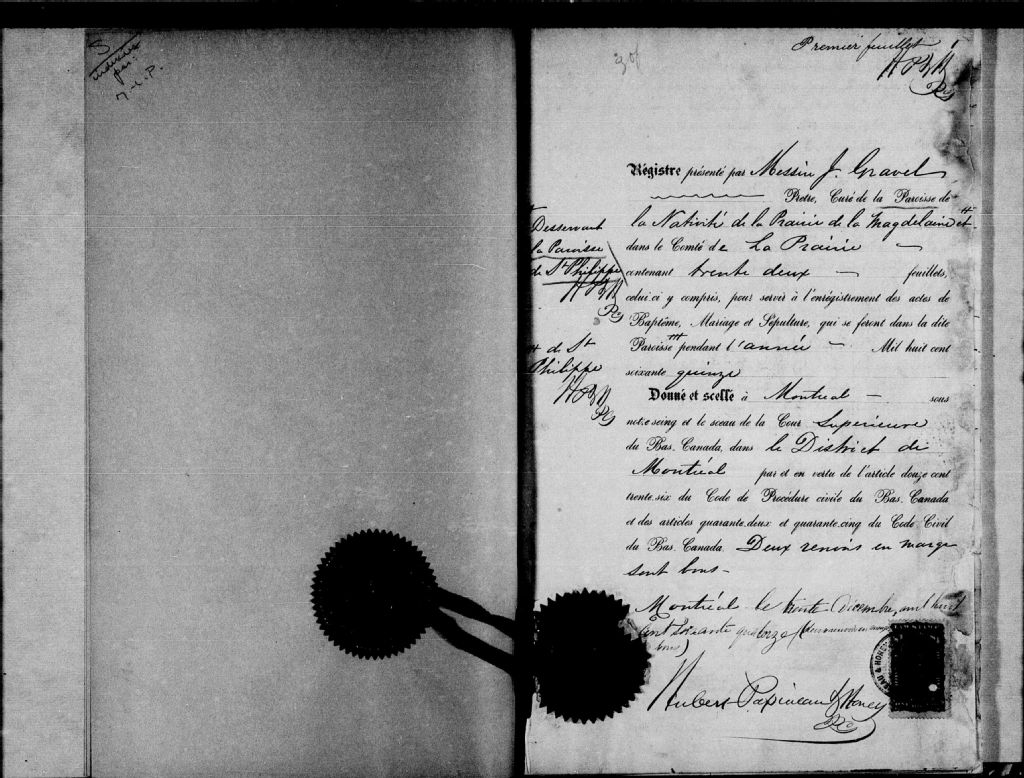 indexée
par
Premier feuillet
HP&H
Régistre présenté par Messire J. Gravel
Prêtre, Curé de la Paroisse de
la Nativité de la Prairie de la Magdelaine et
dans le Comté de La Prairie
contenant trente deux feuillets,
celui ci y compris, pour servir à l'enrégistrement des actes de
Baptême, Mariage et Sépulture, qui se feront dans la dite
Paroisse pendant l'année Mil huit cent
soixante quinze
Donné et scellé à Montreal sous
notre seing et le sceau de la Cour Superieure
du Bas. Canada, dans le District de
Montréal par et en vertu de l'article douze cent
trente.six du Code de Procédure civile du Bas. Canada
et des articles quarante.deux et quarante.cinq du Code Civil
du Bas Canada. Deux renvois en marge
sont bons
Montréal le trente Décembre, mil huit
cent soixante quatorze
bons)
Hubert Papineau & Honey
Desservant
la Paroisse
de St Philippe
HP&H
+ de St
Philippe
HP&H